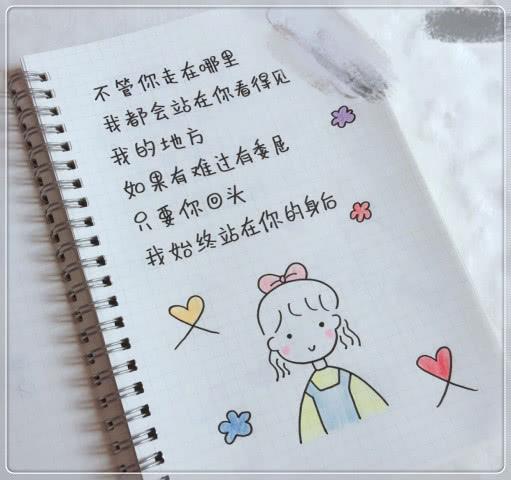 不管你走在哪里
我都会站在你看得见
我的地方
如果有难过有委屈
只要你回头
我始终站在你的身后